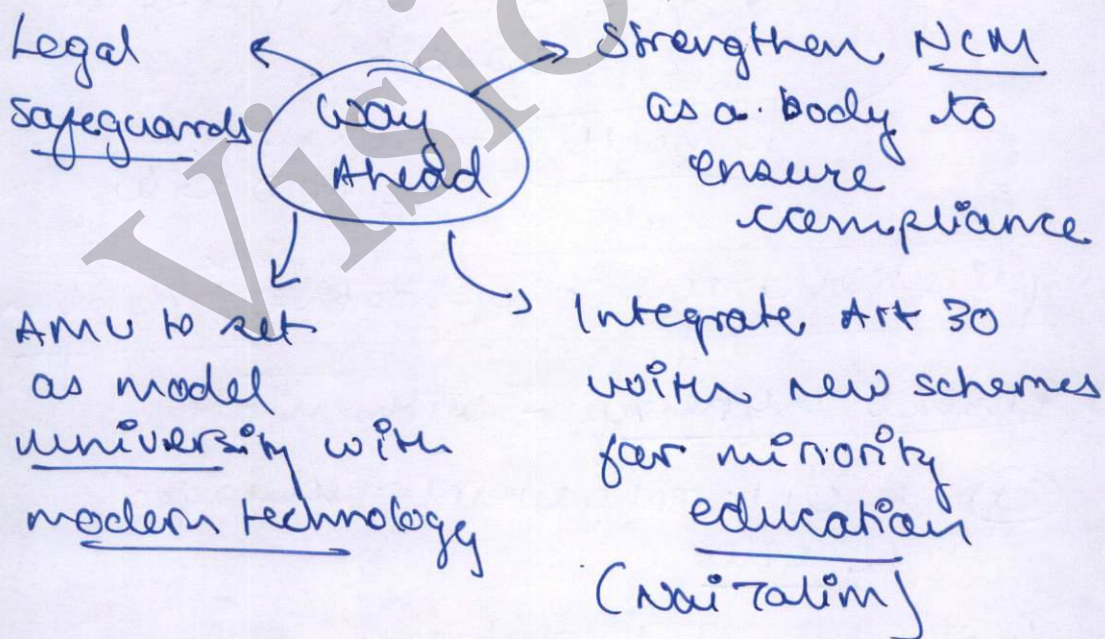 Legal
safeguards
Way
Ahead
Strengthen NCM
as a body to
ensure
compliance
AMU to set
as model
university with
modern technology
Integrate Art 30
with new schemes
for minority
education
(Nai Talim)
Visio